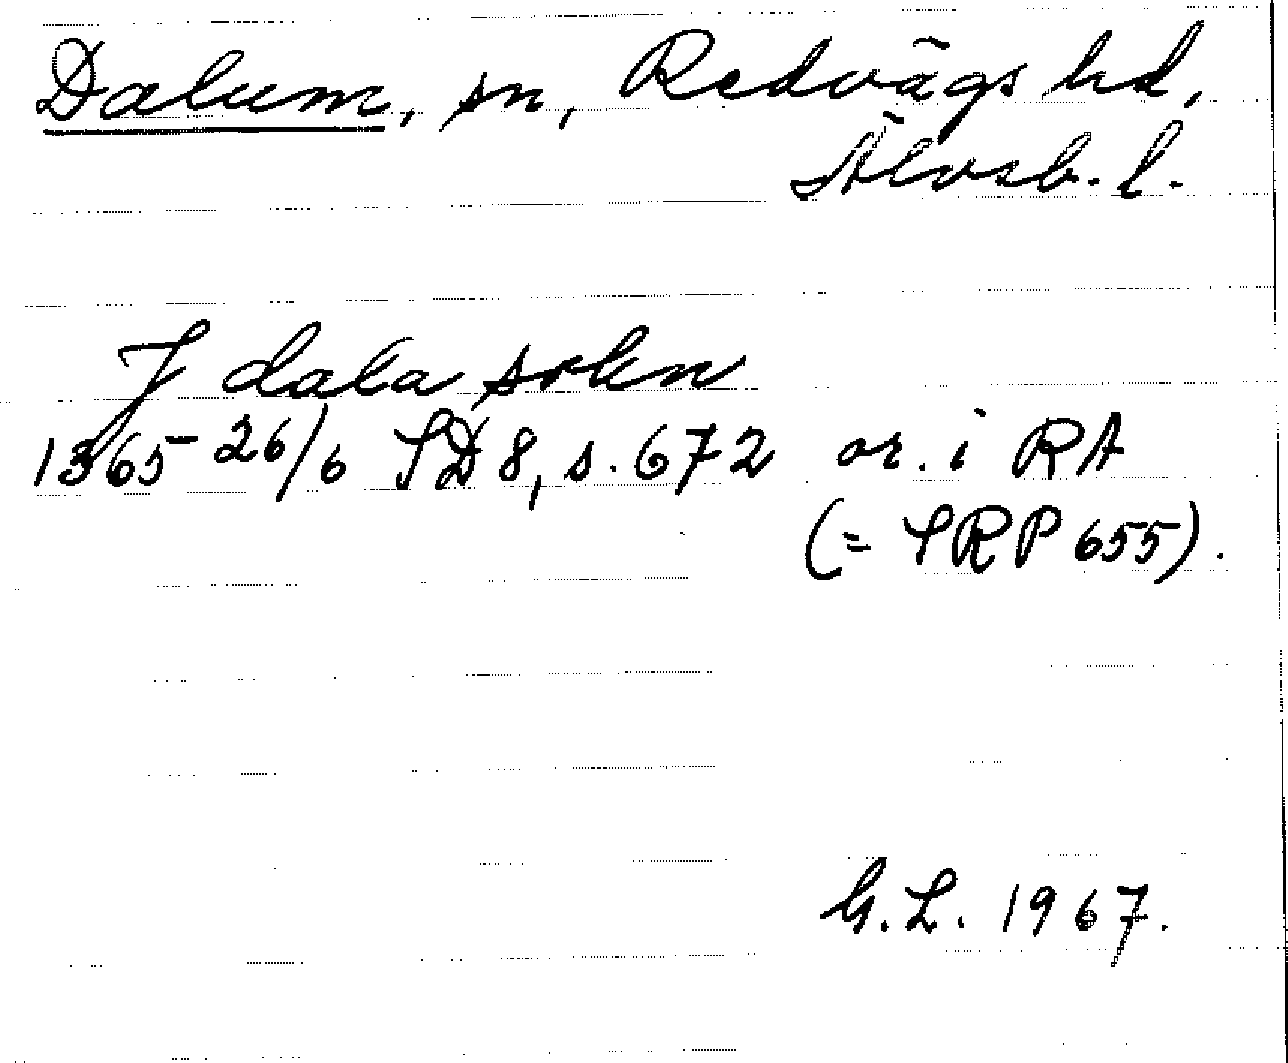 Dalum, sn, Redvägs hd,
Älvsb. l.
J dala sokn
1365 26/6 SD 8, s. 672 or. i RA
(= SRP 655).
G.L. 1967.